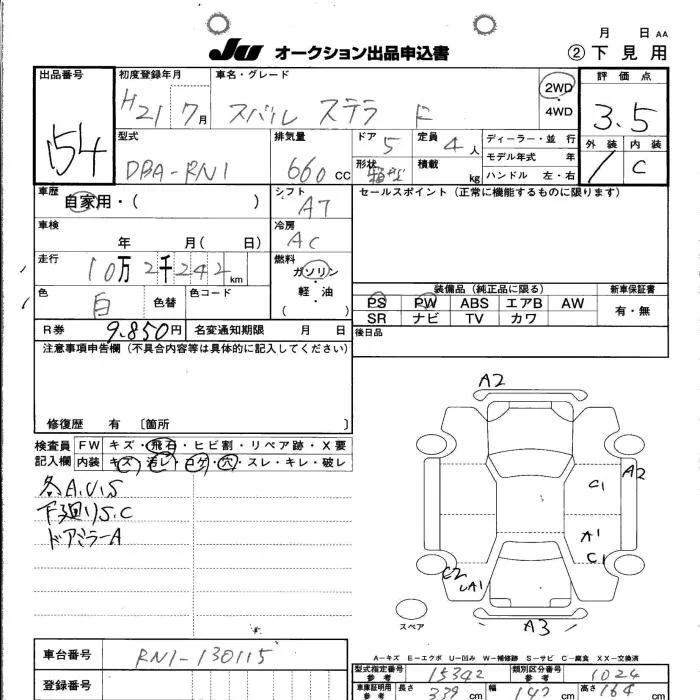 月 日 AA
JU オークション出品申込書 ②下見用
出品番号 初度登録年月 車名・グレード 評価点
154 H21 7月 スバル ステラ F 2WD・4WD 3.5
型式 排気量 ドア 定員 ディーラー・並行 外装 内装
DBA-RN1 660cc 5 4人 モデル年式 年 / C
形状 積載 kg ハンドル 左・右
車歴 シフト セールスポイント(正常に機能するものに限ります)
自家用・( ) AT
車検 冷房
年 月( 日) AC
走行 燃料
10万2千242km ガソリン
軽・油
( )
色 色替 色コード
白
装備品(純正品に限る) 新車保証書
PS PW ABS エアB AW 有・無
SR ナビ TV カワ
R券 9.850円 名変通知期限 月 日 後日品
注意事項申告欄(不具合内容等は具体的に記入してください)
修復歴 有 〔箇所 〕
検査員 FW キズ・飛石・ヒビ割・リペア跡・X要
記入欄 内装 キズ・汚レ・コゲ・穴・スレ・キレ・破レ
各A.U.S
下廻りS.C
ドアミラーA
A2
A2
C1
A1
C1
C2
UA1
A3
スペア
A-キズ E-エクボ U-凹み W-補修跡 S-サビ C-腐食 XX-交換済
車台番号 RN1-130115
登録番号
型式指定番号 参考 15342 類別区分番号 参考 1024
車庫証明用 参考 長さ 339cm 幅 147cm 高さ 164cm